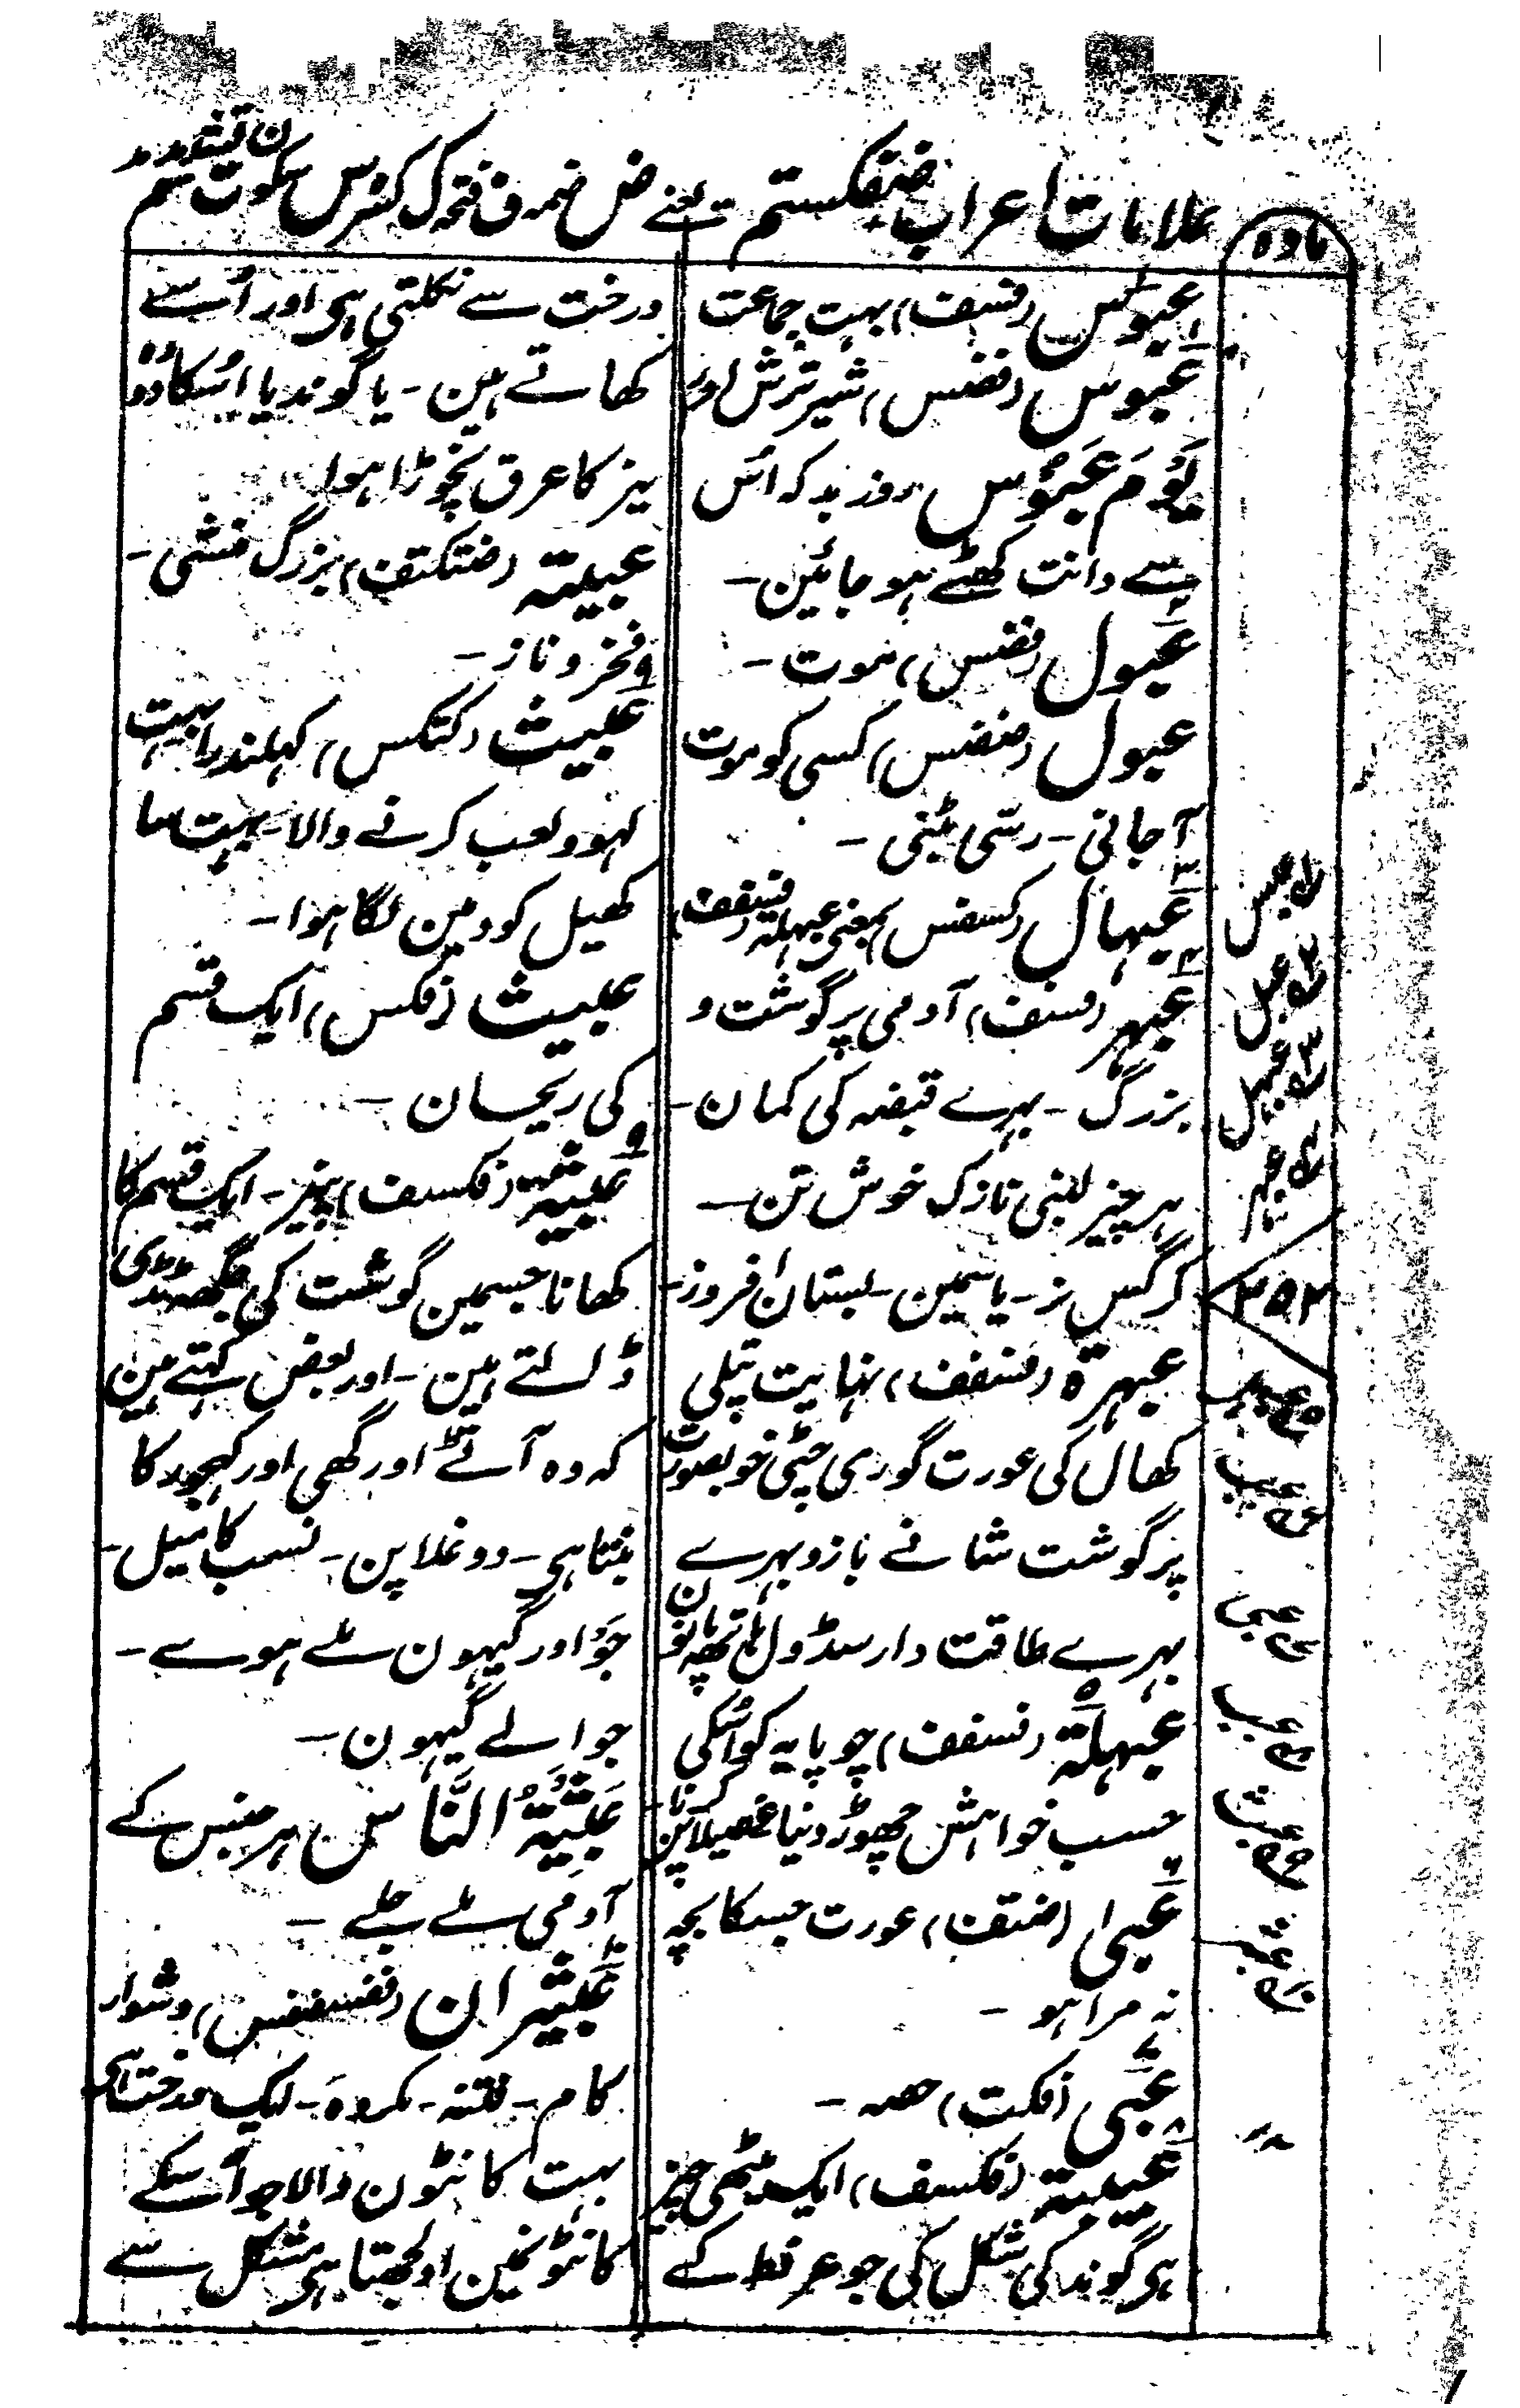 علامات اعراب ضفکستم یعنے ض ضمہ ف فتحہ ک کسر س سکوت تم
ن تشدید
مادہ
عبوس (فسف) بہت جماعت
عبوس (فضس) شیر ترش اور
یَوْمَ عَبُوْس روز بد کہ اس
سے دانت کھٹے ہو جائین ـ
عبول (فضس) موت ـ
عبول (ضضس) کسی کو موت
آ جانی ـ رسّی بٹنی ـ
عبہال (کسفس) بمعنی عبہلہ (فسفف)
عبہر (فسف) آدمی پر گوشت و
بزرگ ـ بہرے قبضہ کی کمان ـ
ہر چیز لنبی نازک خوش تن ـ
نرگس ـ یاسمین ـ بستان افروز ـ
عبہرۃ (فسفف) نہایت پتلی
کھال کی عورت گوری چٹی خوبصورت
پر گوشت شانے بازو بہرے
بہرے طاقت دار سڈول ہاتھ پانون
عبہلۃ (فسفف) چوپایہ کو اسکی
حسب خواہش چھوڑ دینا غصیلا پن کرنا ـ
عبی (ضتف) عورت جسکا بچہ
نہ مرا ہو ـ
عبی (فکت) حصہ ـ
عبیبۃ (فکسف) ایک میٹھی چیز
ہی گوند کی شکل کی جو عرفط کے
درخت سے نکلتی ہی اور اُسے
کھاتے ہین ـ یا گوند یا اسکا دو
نیز کا عرق نچوڑا ہوا
عبیتہ (ضتکتف) بزرگ منشی ـ
و فخر و ناز ـ
عبیث (کتکس) کہلندرا بہت
لہو ولعب کرنے والا ـ بہت سا
کھیل کود مین لگا ہوا ـ
عبیث (فکس) ایک قسم
کی ریحان ـ
عبیثۃ (فکسف) پنیر ـ ایک قسم کا
کھانا جسمین گوشت کی جگھ ٹڈی
ڈالتے ہین ـ اور بعض کہتے ہین
کہ وہ آٹے اور گھی اور کہجور کا
بنتا ہی ـ دوغلا پن ـ نسب کا میل ـ
جَو اور گیہون ملے ہوے ـ
جو الے گیہون ـ
عَبِیْثَۃُ النَّاس ہر جنس کے
آدمی ملے جلے ـ
عبیثران (ففسففس) دشوار
کام ـ فتنہ ـ مکروہ ـ ایک درخت ہی
بہت کانٹون والا جو اُسکے
کانٹونمین اولجھتا ہی مشکل سے
عبس
عبل
عبہل
عبہر
۳۵۲
عبب
عبی
عب
عبث